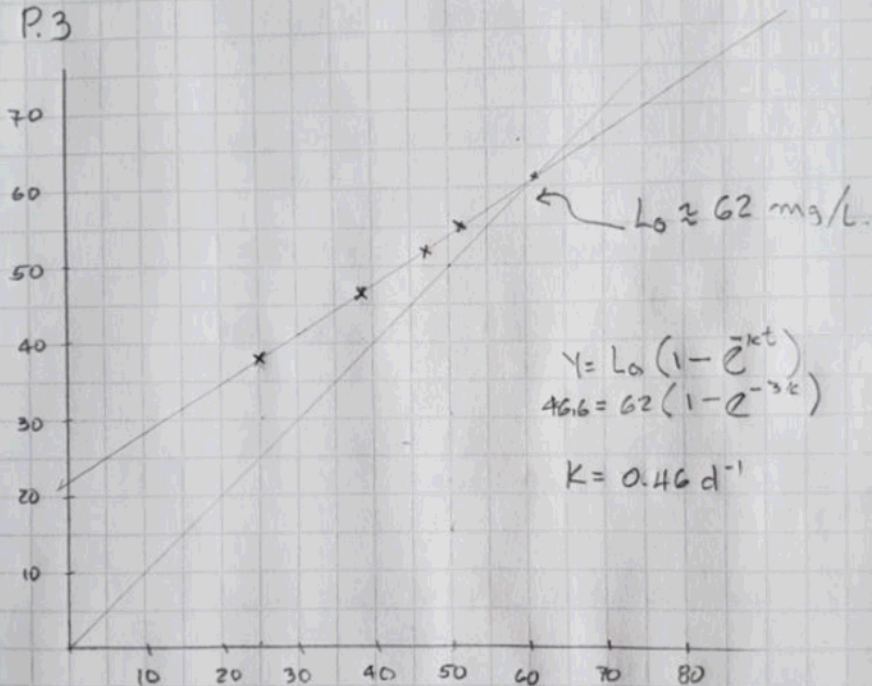 P.3
70
60
50
40
30
20
10
10 20 30 40 50 60 70 80
Lo ≈ 62 mg/L.
Y = Lo (1 - e^-kt)
46,6 = 62 (1 - e^-3k)
K = 0.46 d^-1